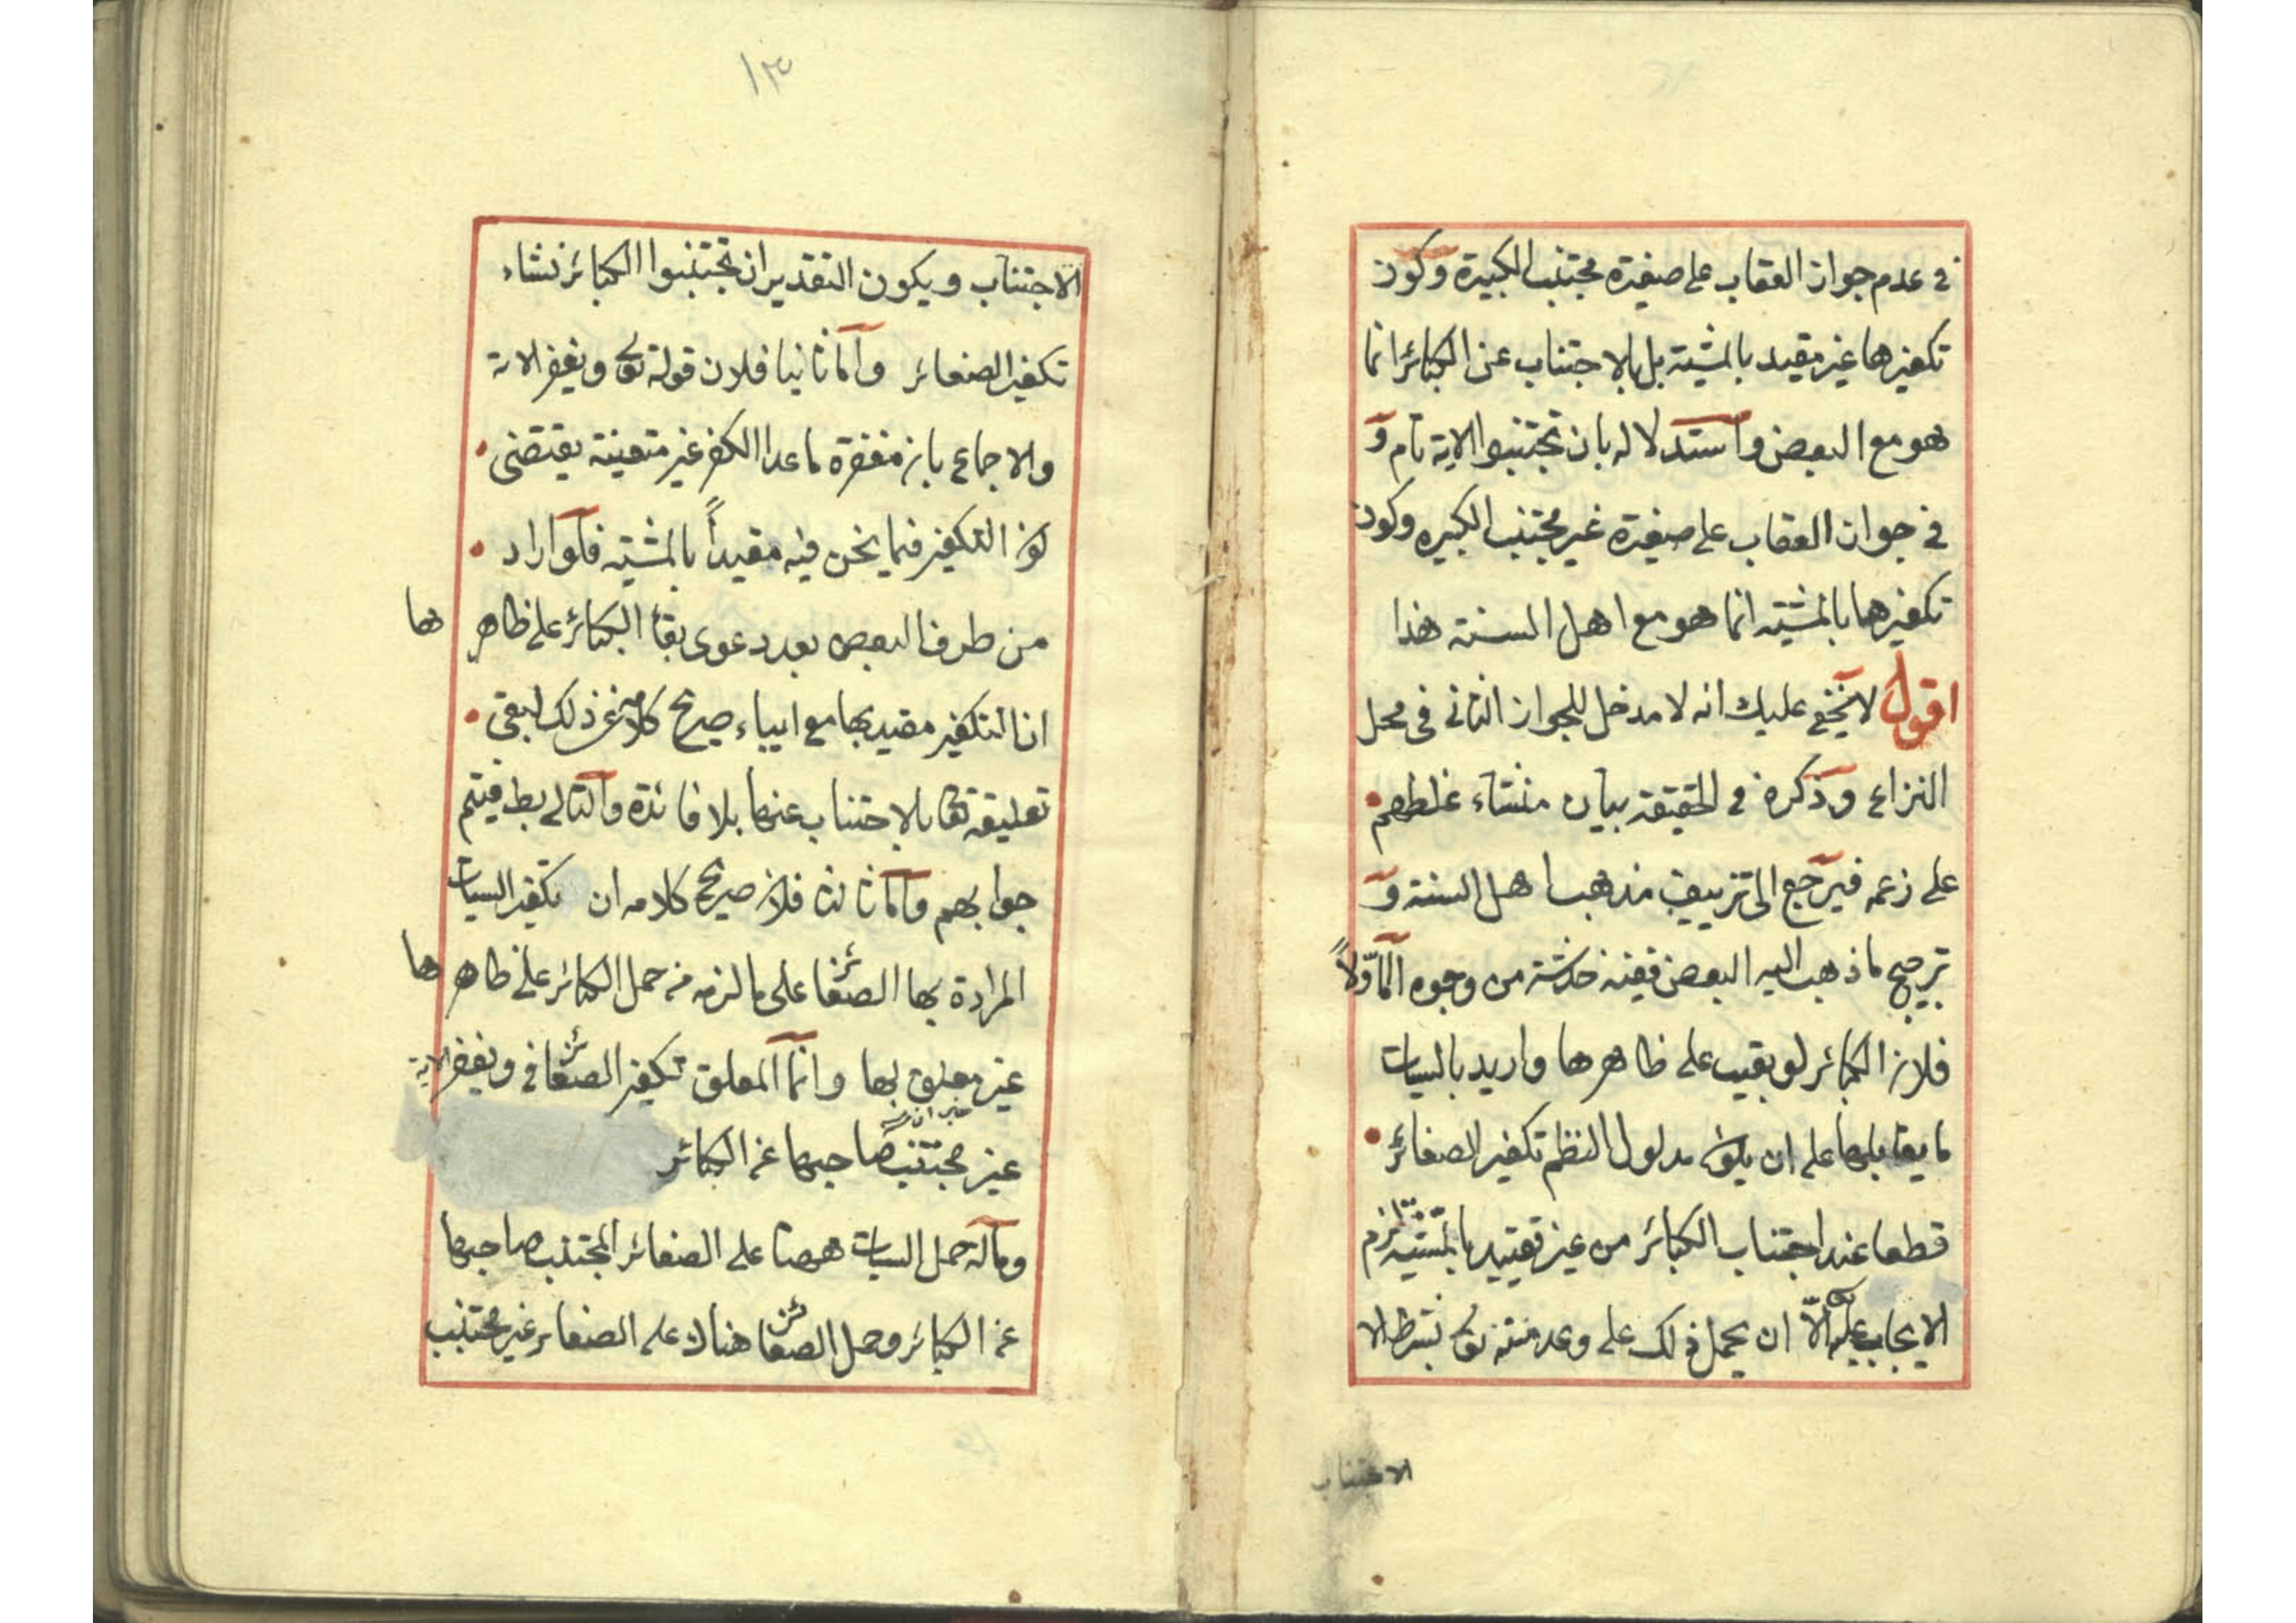 في عدم جواز العقاب على صغيرة مجتنب الكبيرة وكون
تكفيرها غير مقيد بالمشية بل بالاجتناب عن الكبائر انما
هو مع البعض واستدلاله بان تجتنبوا الاية تام و
في جواز العقاب على صغيرة غير مجتنب الكبيره وكون
تكفيرها بالمشية انما هو مع اهل السنة هذا
اقول لا يخفى عليك انه لا مدخل للجواز الثاني في محل
النزاع وذكره في الحقيقة بيان منشاء غلطهم
على زعمه فيرجع الى تزييف مذهب اهل السنة و
ترجيح ما ذهب اليه البعض ففيه خدشة من وجوه اما اولاً
فلان الكبائر لو بقيت على ظاهرها واريد بالسيات
ما يقابلها على ان يكون مدلول النظم تكفير الصغائر
قطعا عند اجتناب الكبائر من غير تقييد بالمشية لزم
الايجاب عليه تع الّا ان يحمل ذلك على وعد منه تع بشرط الا
الاجتناب
١٣
الاجتناب ويكون التقدير ان تجتنبوا الكبائر نشاء
تكفير الصغائر واما ثانيا فلان قوله تع ويغفر الاية
والاجماع بان مغفرة ما عدا الكفر غير متعينة يقتضى
كون التكفير فيما نحن فيه مقيداً بالمشية فلو اراد
من طرف البعض بعد دعوى بقأ الكبائر على ظاهرها
ان التكفير مقيد بها مع اباء صريح كلامه عن ذلك لبقى
تعليقه تع بالاجتناب عنها بلا فائدة والتالي بط فيتم
جوابهم واما ثالثا فلان صريح كلامه ان تكفير السيات
المرادة بها الصغائر على ما لزمه من حمل الكبائر على ظاهرها
غير معلق بها وانما المعلق تكفير الصغائر في ويغفر الاية
غير مجتنب صاحبها عن الكبائر
وماله حمل السيات ههنا على الصغائر المجتنب صاحبها
عن الكبائر وحمل الصغائر هناك على الصغائر غير مجتنب